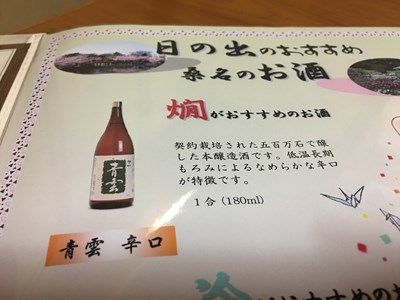 日の出のおすすめ
桑名のお酒
燗がおすすめのお酒
契約栽培された五百万石で醸
した本醸造酒です。低温長期
もろみによるなめらかな辛口
が特徴です。
1合(180ml)
青雲
青雲 辛口